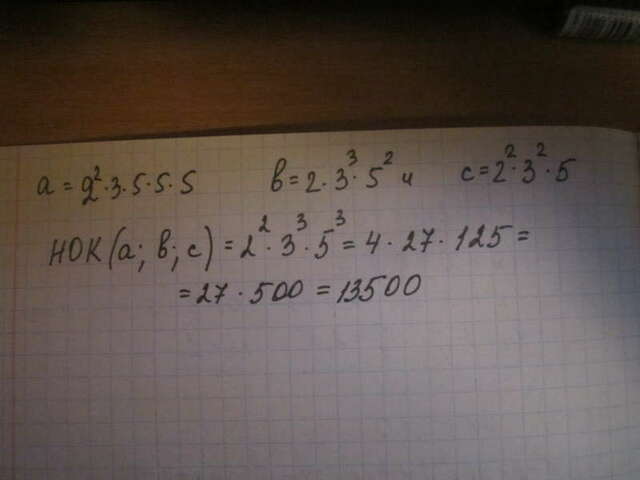 a = 2²·3·5·5·5 в = 2·3³·5² и c = 2²·3²·5
НОК (a; в; c) = 2²·3³·5³ = 4·27·125 =
= 27·500 = 13500